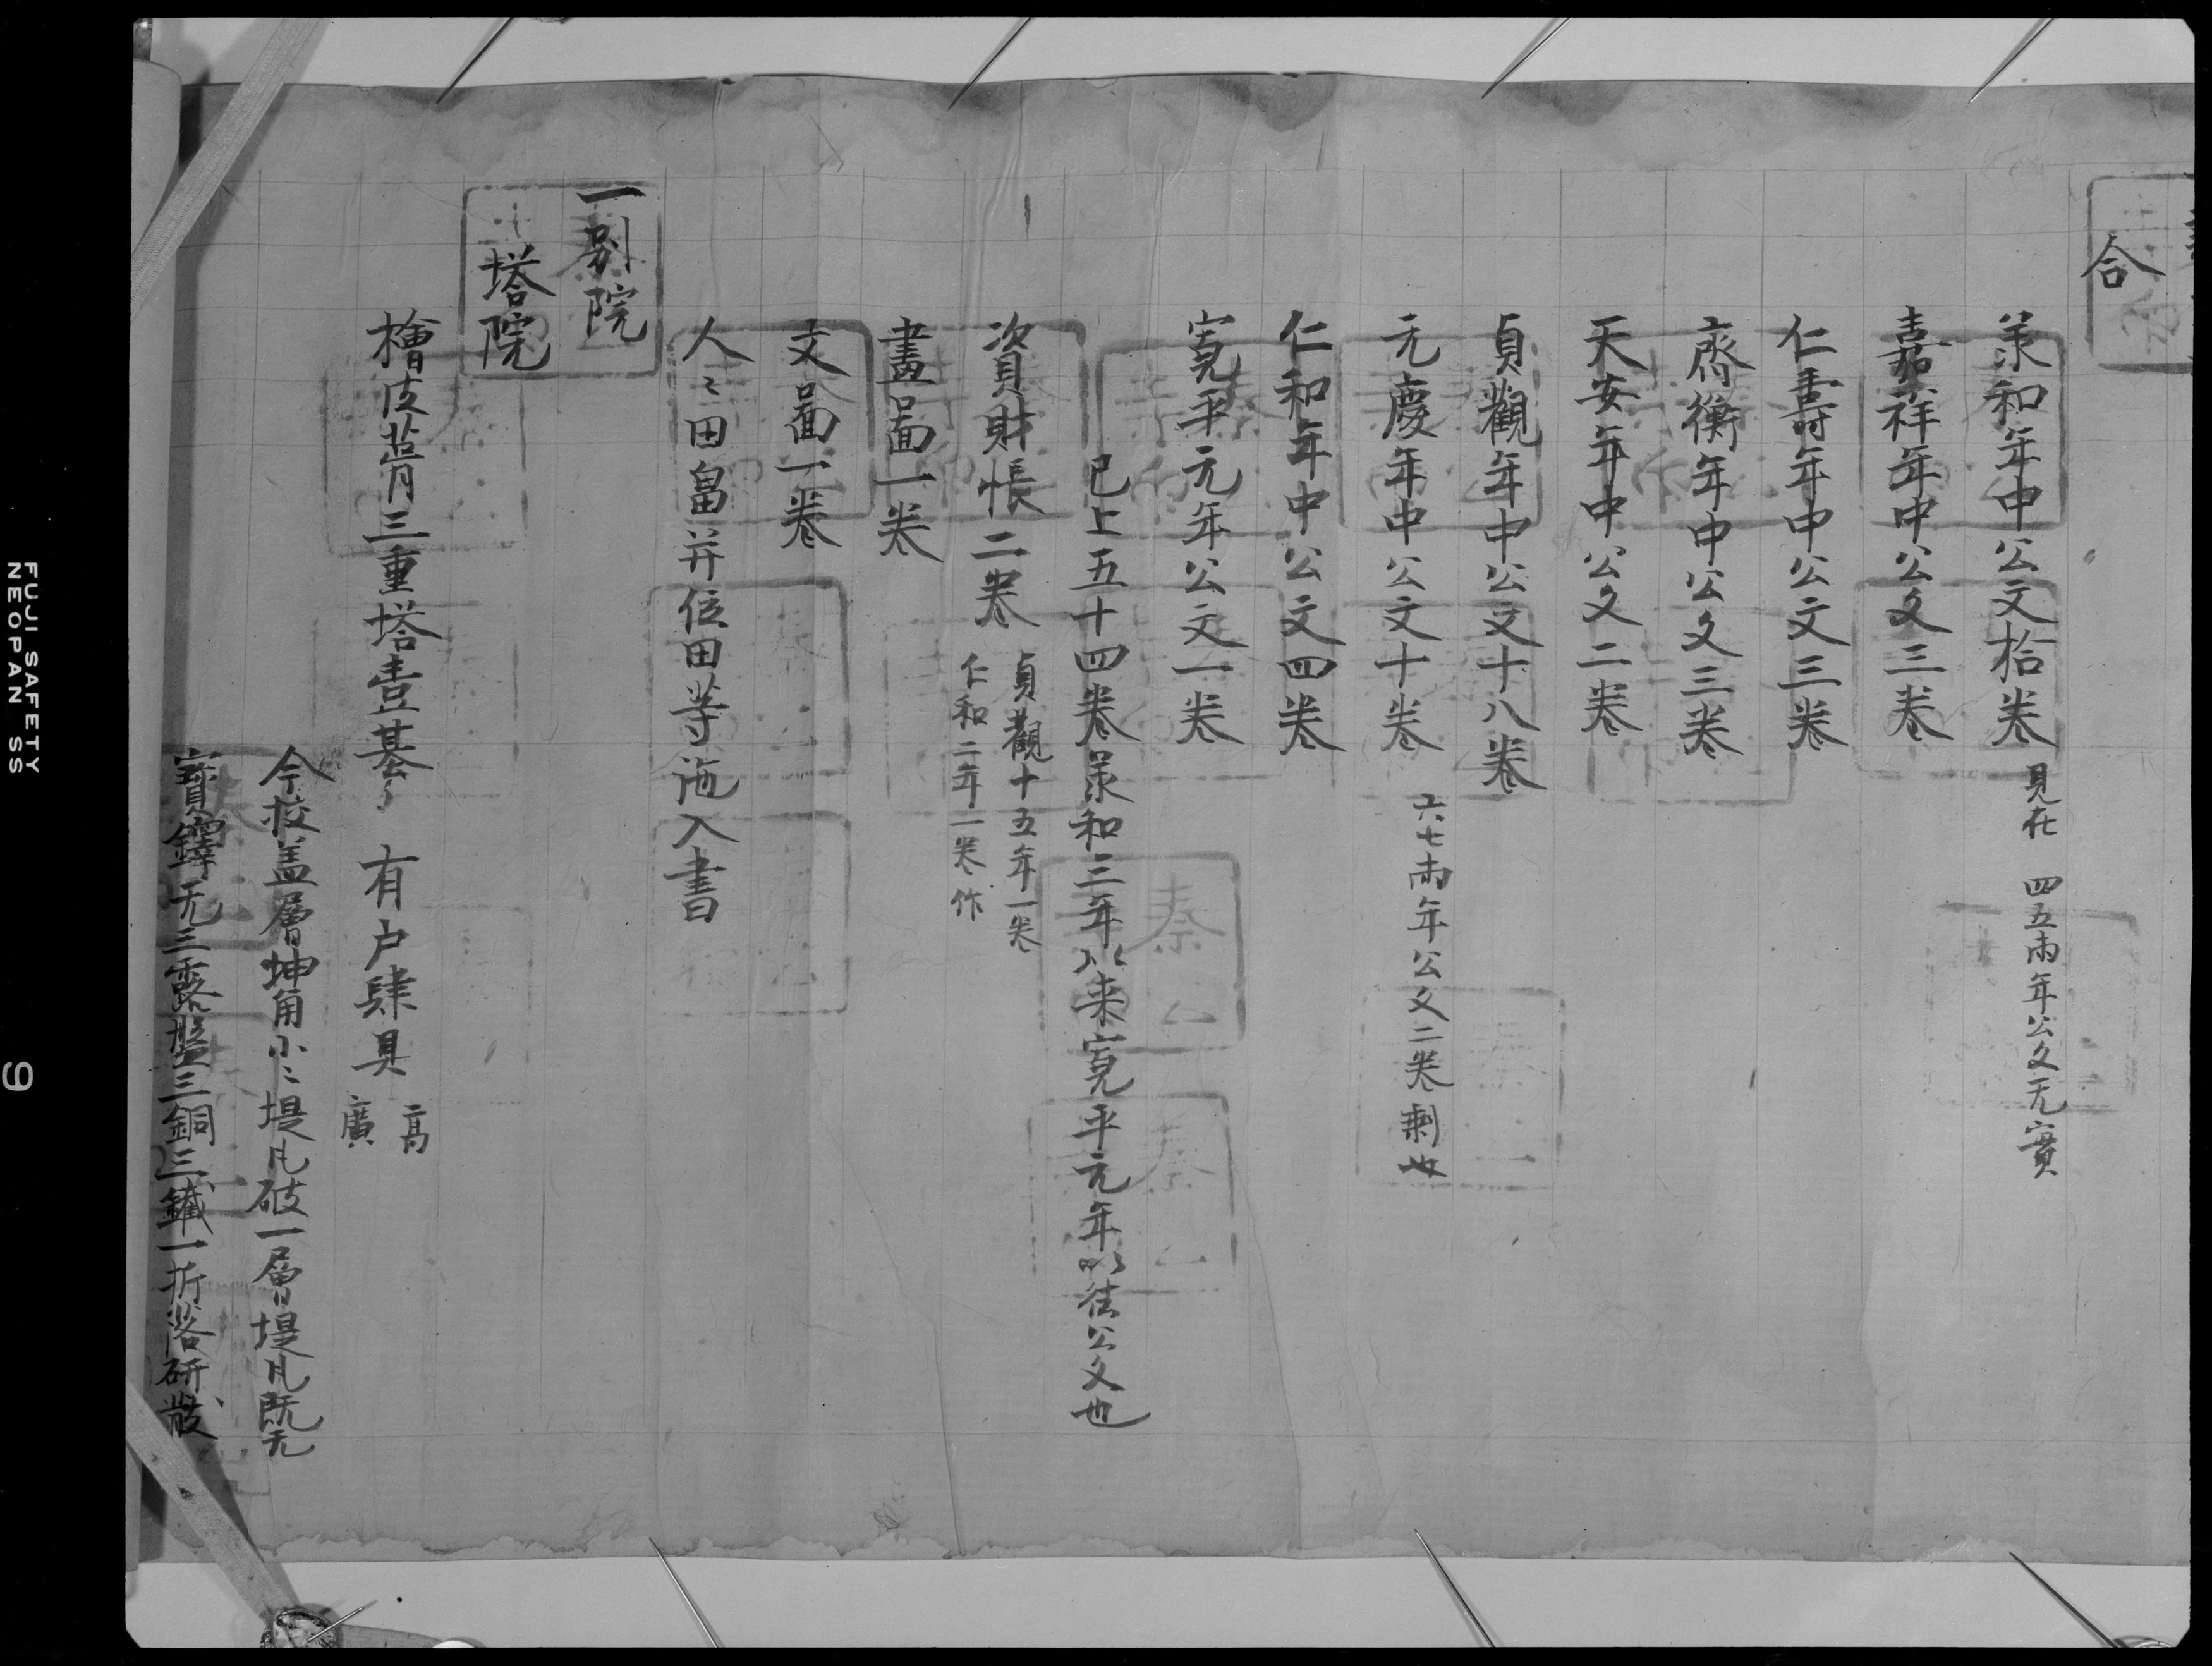 合
羕和年中公文拾巻 見在 四五兩年公文无實
嘉祥年中公文三巻
仁壽年中公文三巻
齊衡年中公文三巻
天安年中公文二巻
貞觀年中公文十八巻
元慶年中公文十巻 六七兩年公文二巻剩收
仁和年中公文四巻
寛平元年公文一巻
已上五十四巻羕和三年以来寛平元年以徃公文也
資財帳二巻 貞觀十五年一巻
仁和二年一巻作
畫啚一巻
文啚一巻
人々田畠并位田等施入書
一別院
塔院
檜皮葺三重塔壹基 有户肆具 高
廣
今校盖層坤角小々堤凡破一層堤凡既无
寶鐸无三露盤三銅三鐵一折落研散
FUJI SAFETY
NEOPAN SS
9